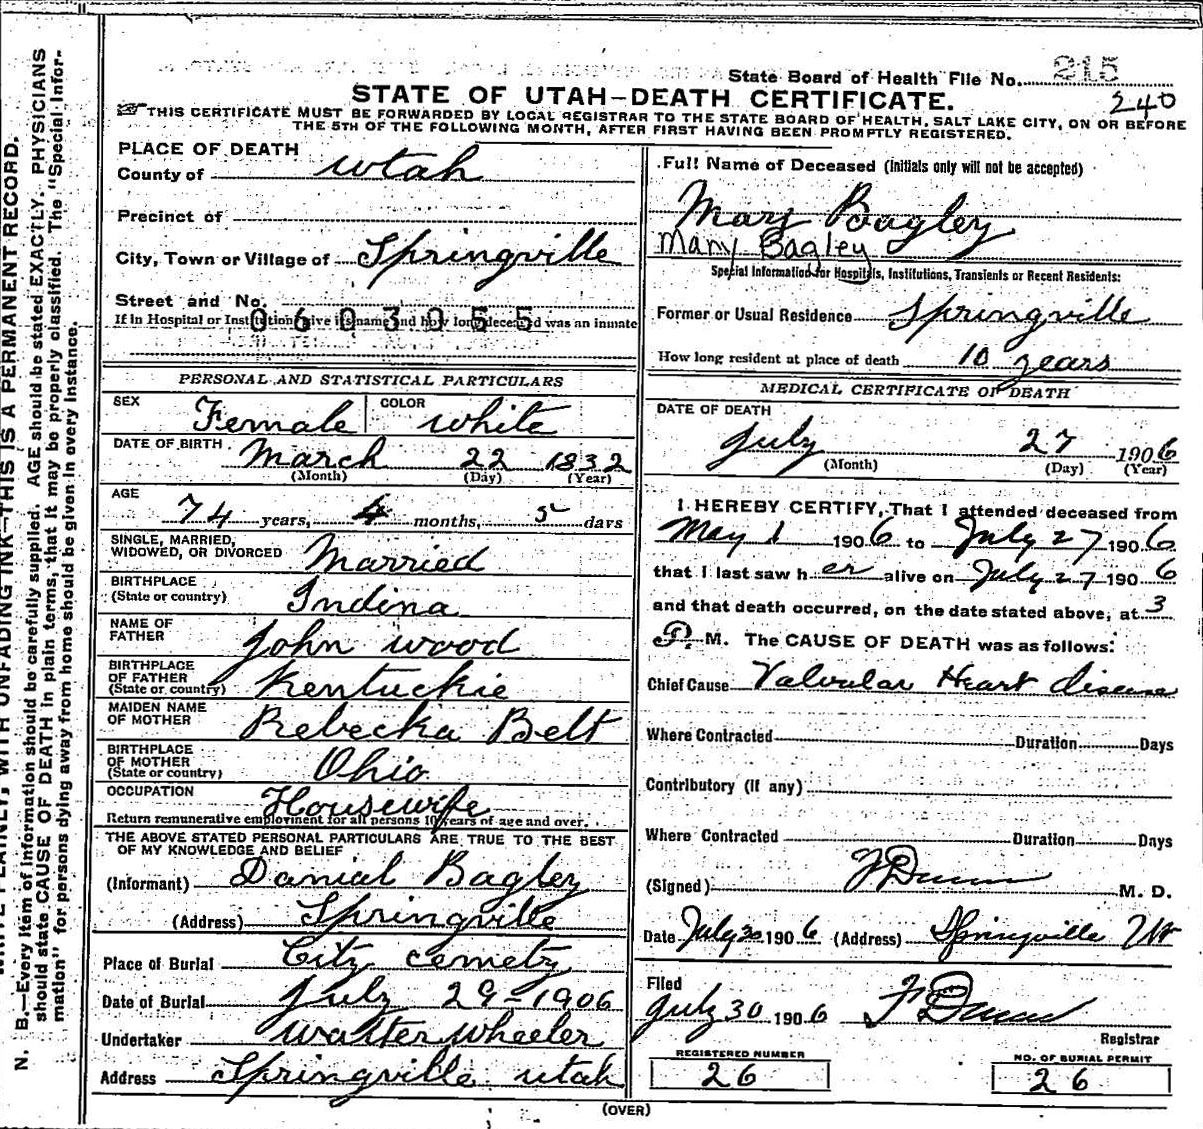 State Board of Health File No. 215
240
STATE OF UTAH—DEATH CERTIFICATE.
THIS CERTIFICATE MUST BE FORWARDED BY LOCAL REGISTRAR TO THE STATE BOARD OF HEALTH, SALT LAKE CITY, ON OR BEFORE
THE 5TH OF THE FOLLOWING MONTH, AFTER FIRST HAVING BEEN PROMPTLY REGISTERED.
PLACE OF DEATH
County of Utah
Precinct of
City, Town or Village of Springville
Street and No.
If in Hospital or Institution give its name and how long deceased was an inmate
0603055
PERSONAL AND STATISTICAL PARTICULARS
SEX Female COLOR white
DATE OF BIRTH March 22 1832
(Month) (Day) (Year)
AGE 74 years, 4 months, 5 days
SINGLE, MARRIED,
WIDOWED, OR DIVORCED Married
BIRTHPLACE
(State or country) Indina
NAME OF
FATHER John wood
BIRTHPLACE
OF FATHER
(State or country) Kentuckie
MAIDEN NAME
OF MOTHER Rebecka Belt
BIRTHPLACE
OF MOTHER
(State or country) Ohio
OCCUPATION Housewife
Return remunerative employment for all persons 10 years of age and over.
THE ABOVE STATED PERSONAL PARTICULARS ARE TRUE TO THE BEST
OF MY KNOWLEDGE AND BELIEF
(Informant) Danial Bagley
(Address) Springville
Place of Burial City cemetry
Date of Burial July 29-1906
Undertaker Walter Wheeler
Address Springville utah
Full Name of Deceased (initials only will not be accepted)
Mary Bagley
Mary Bagley
Special Information for Hospitals, Institutions, Transients or Recent Residents:
Former or Usual Residence Springville
How long resident at place of death 10 years
MEDICAL CERTIFICATE OF DEATH
DATE OF DEATH
July 27 1906
(Month) (Day) (Year)
I HEREBY CERTIFY, That I attended deceased from
May 1 1906 to July 27 1906
that I last saw her alive on July 27 1906
and that death occurred, on the date stated above, at 3
P. M. The CAUSE OF DEATH was as follows:
Chief Cause Valvular Heart disease
Where Contracted Duration Days
Contributory (if any)
Where Contracted Duration Days
(Signed) F Dunn M. D.
Date July 30 1906 (Address) Springville Ut
Filed
July 30 1906 F Dunn
Registrar
REGISTERED NUMBER
26
NO. OF BURIAL PERMIT
26
(OVER)
N. B.—Every item of information should be carefully supplied. AGE should be stated EXACTLY. PHYSICIANS
should state CAUSE OF DEATH in plain terms, that it may be properly classified. The "Special Infor-
mation" for persons dying away from home should be given in every instance.
WRITE PLAINLY, WITH UNFADING INK—THIS IS A PERMANENT RECORD.